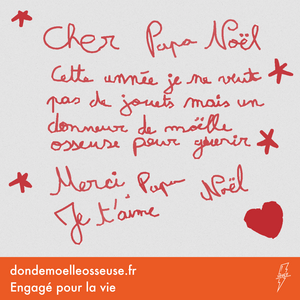 Cher Papa Noël
Cette année je ne veut
pas de jouets mais un
donneur de moëlle
osseuse pour guérir
Merci Papa Noël
Je t'aime
dondemoelleosseuse.fr
Engagé pour la vie